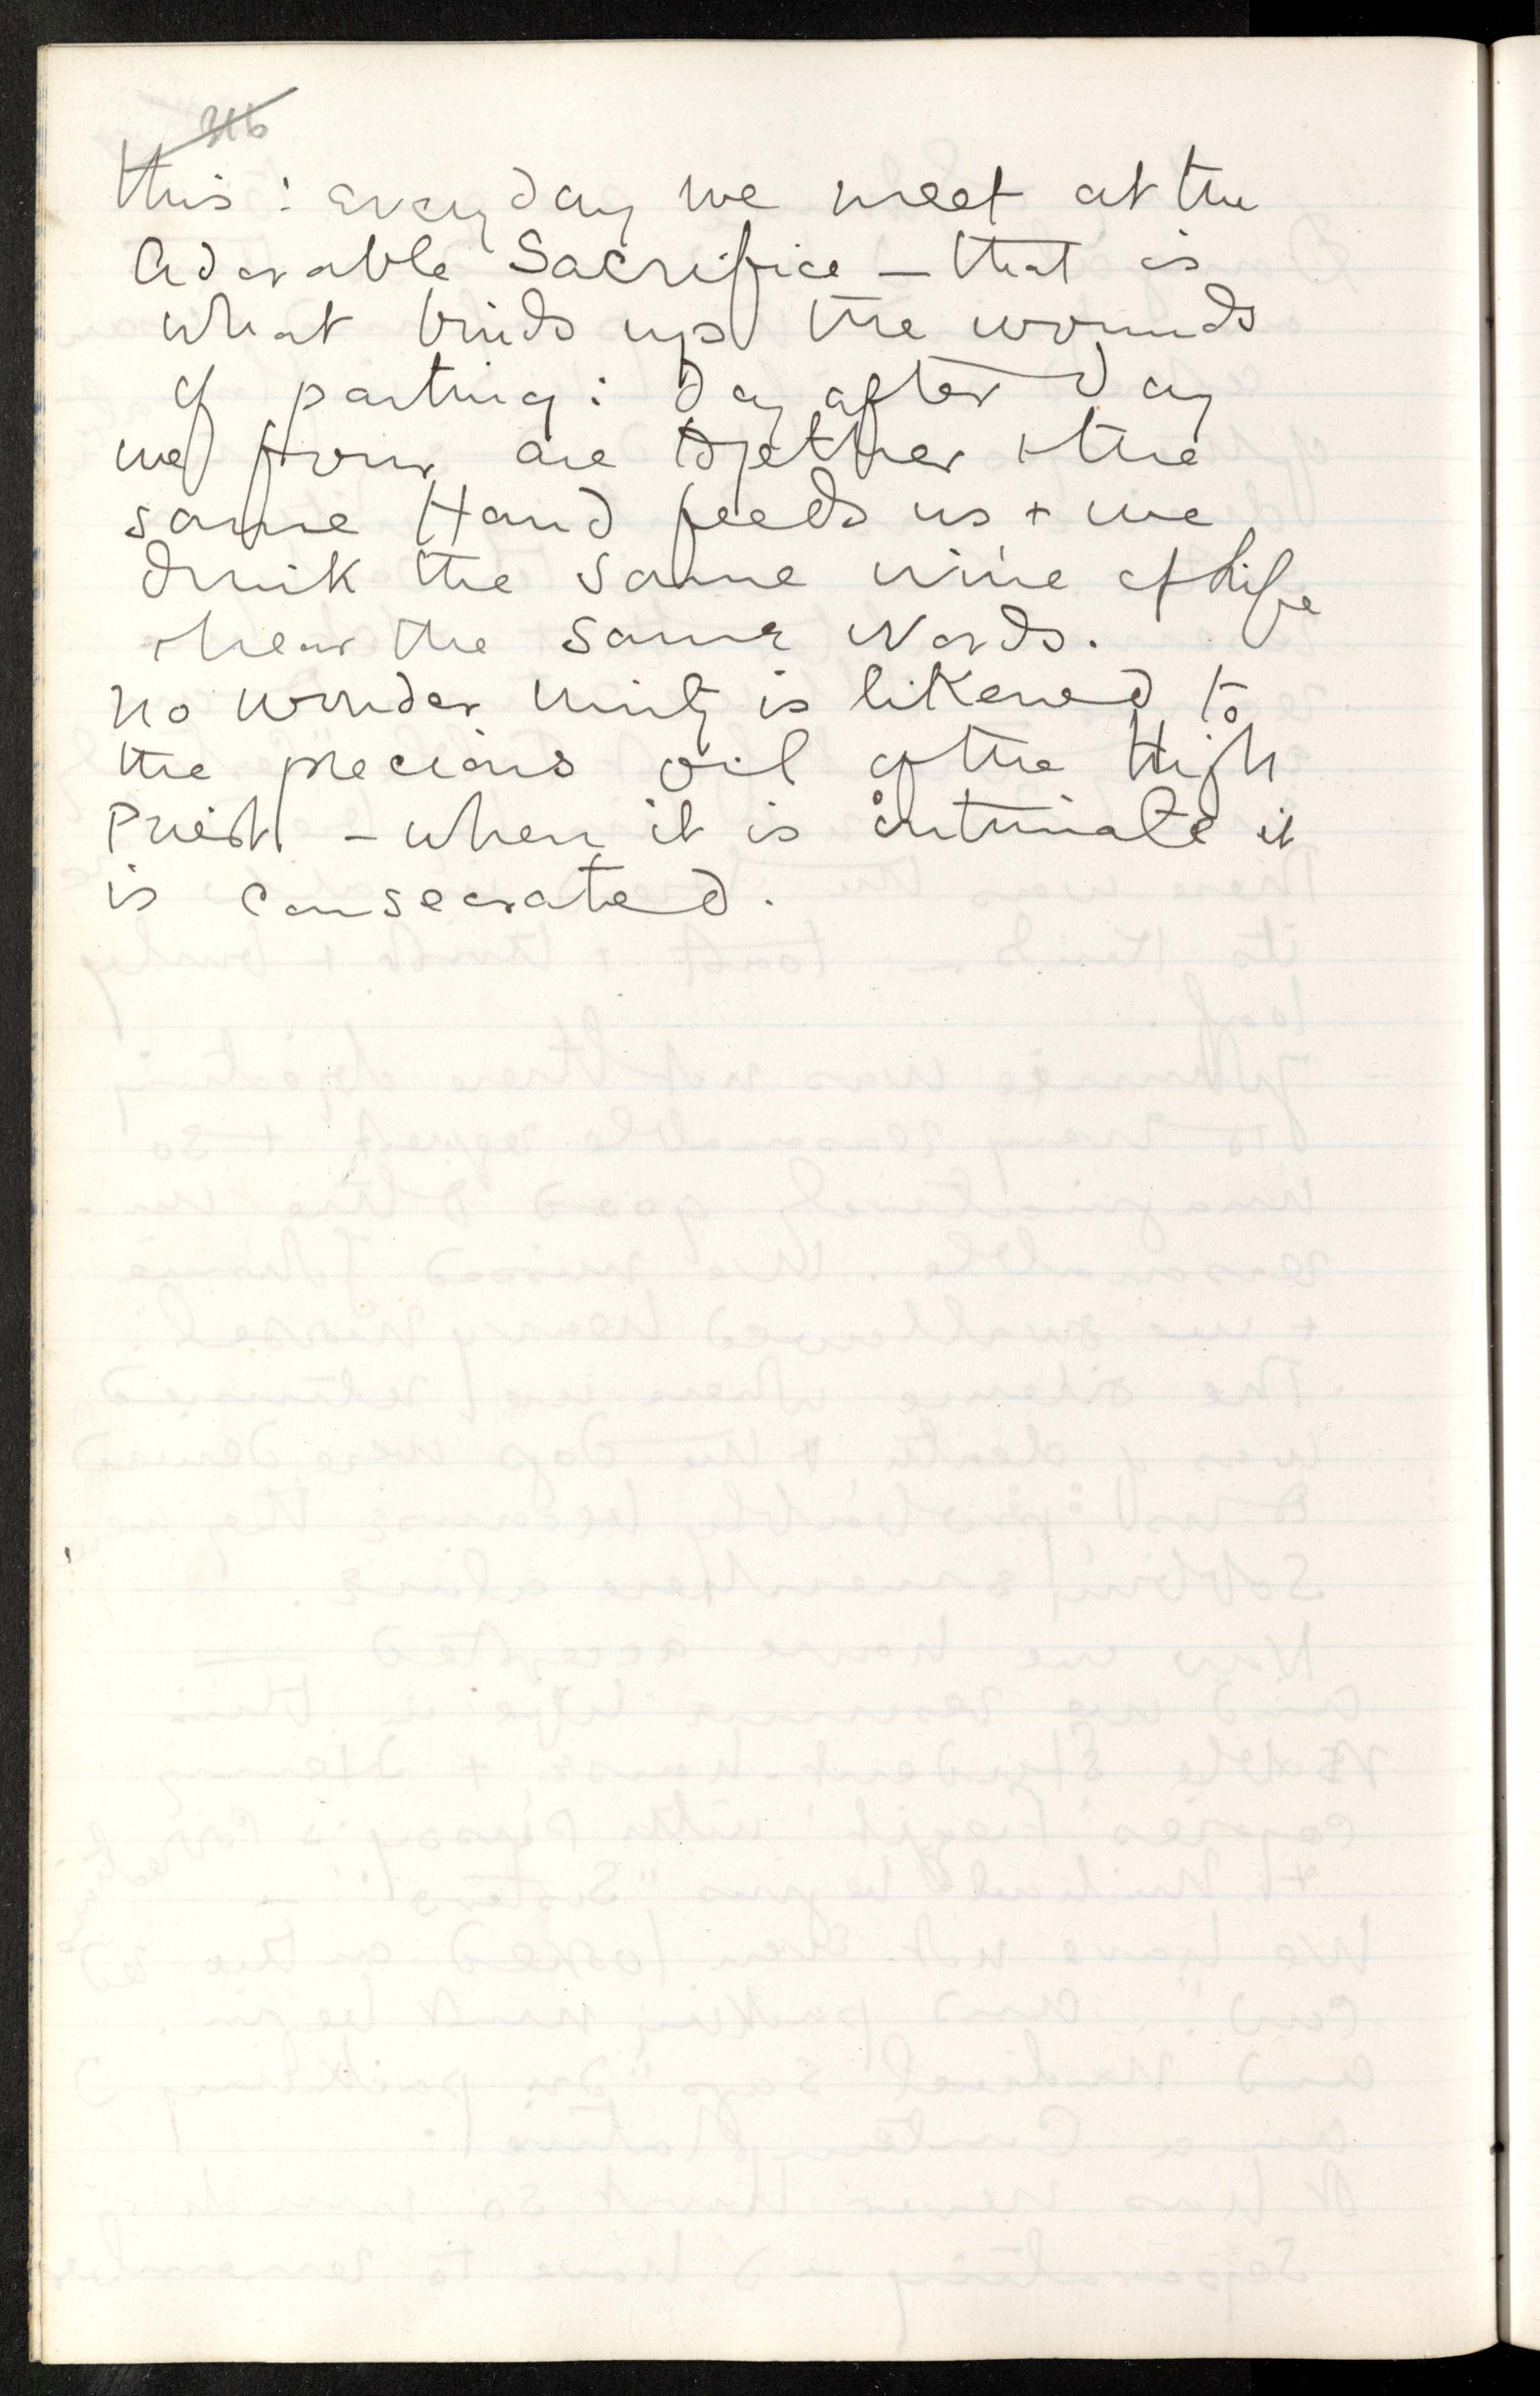 this : every day we meet at the
Adorable Sacrifice – that is
what binds up the wounds
of parting : day after day
we four are together + the
same Hand feeds us + we
drink the same wine of Life
+ hear the same Words.
No wonder Unity is likened to
the precious oil of the High
Priest – when it is intimate it
is consecrated.